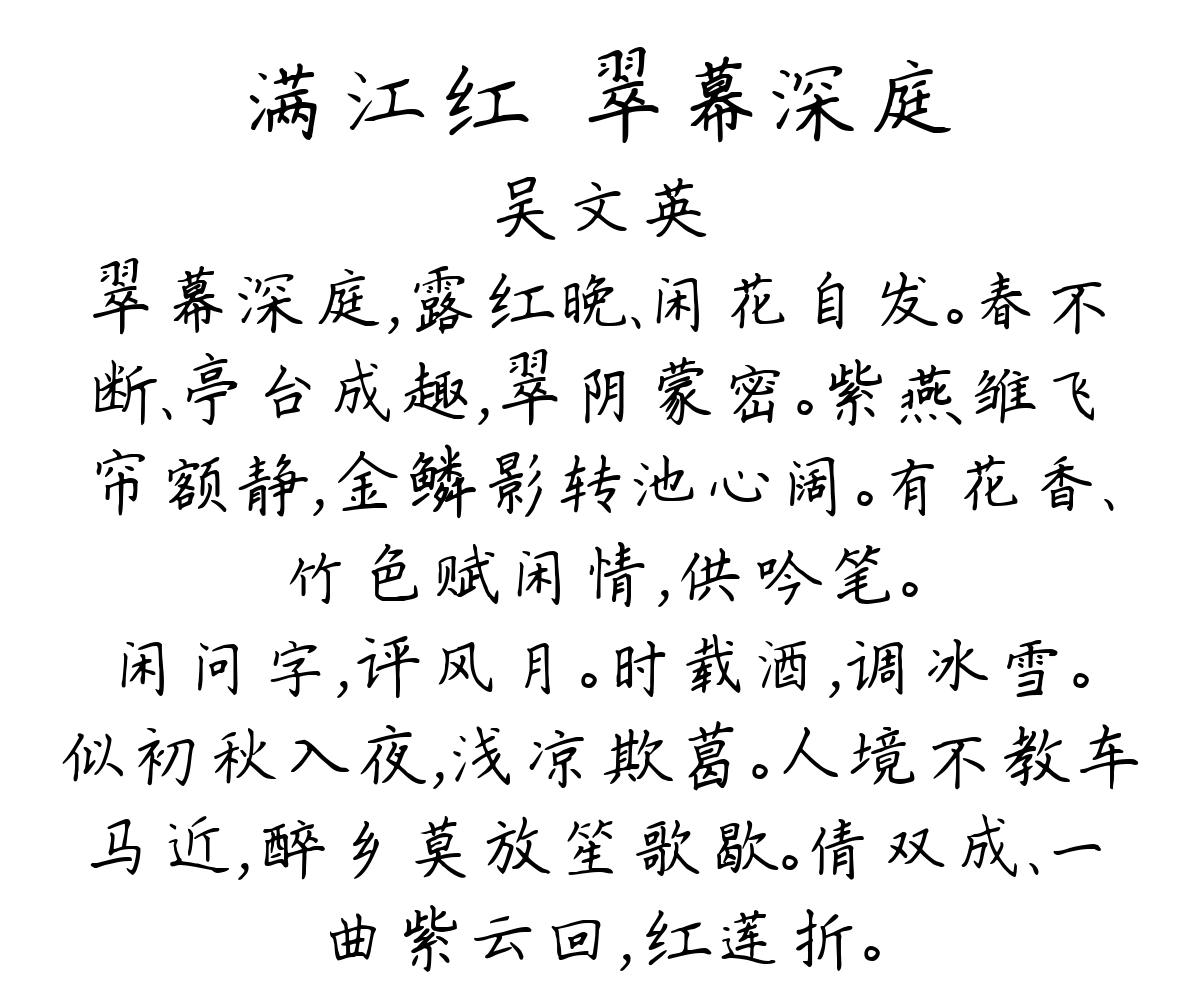 满江红 翠幕深庭
吴文英
翠幕深庭,露红晚、闲花自发。春不
断、亭台成趣,翠阴蒙密。紫燕雏飞
帘额静,金鳞影转池心阔。有花香、
竹色赋闲情,供吟笔。
闲问字,评风月。时载酒,调冰雪。
似初秋入夜,浅凉欺葛。人境不教车
马近,醉乡莫放笙歌歇。倩双成、一
曲紫云回,红莲折。